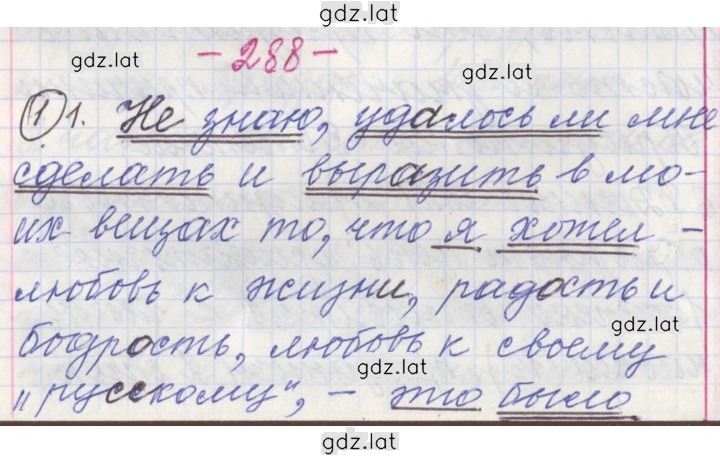 gdz.lat
- 288 -
gdz.lat
gdz.lat
① 1. Не знаю, удалось ли мне
сделать и выразить в мо-
их вещах то, что я хотел -
любовь к жизни, радость и
бодрость, любовь к своему
„русскому“, - это было
gdz.lat
gdz.lat
gdz.lat